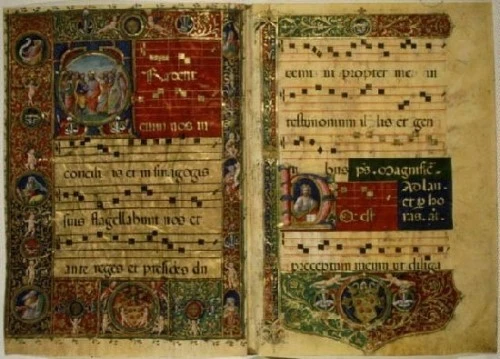 radent
enim uos in
conciliis et in sinagogis
suis flagellabunt uos et
ante reges et presides du
cemini propter me in
testimonium il lis et gen
bus ps. Magnific
Ad lau
et p ho
ras. an.
oc est
preceptum meum ut diliga